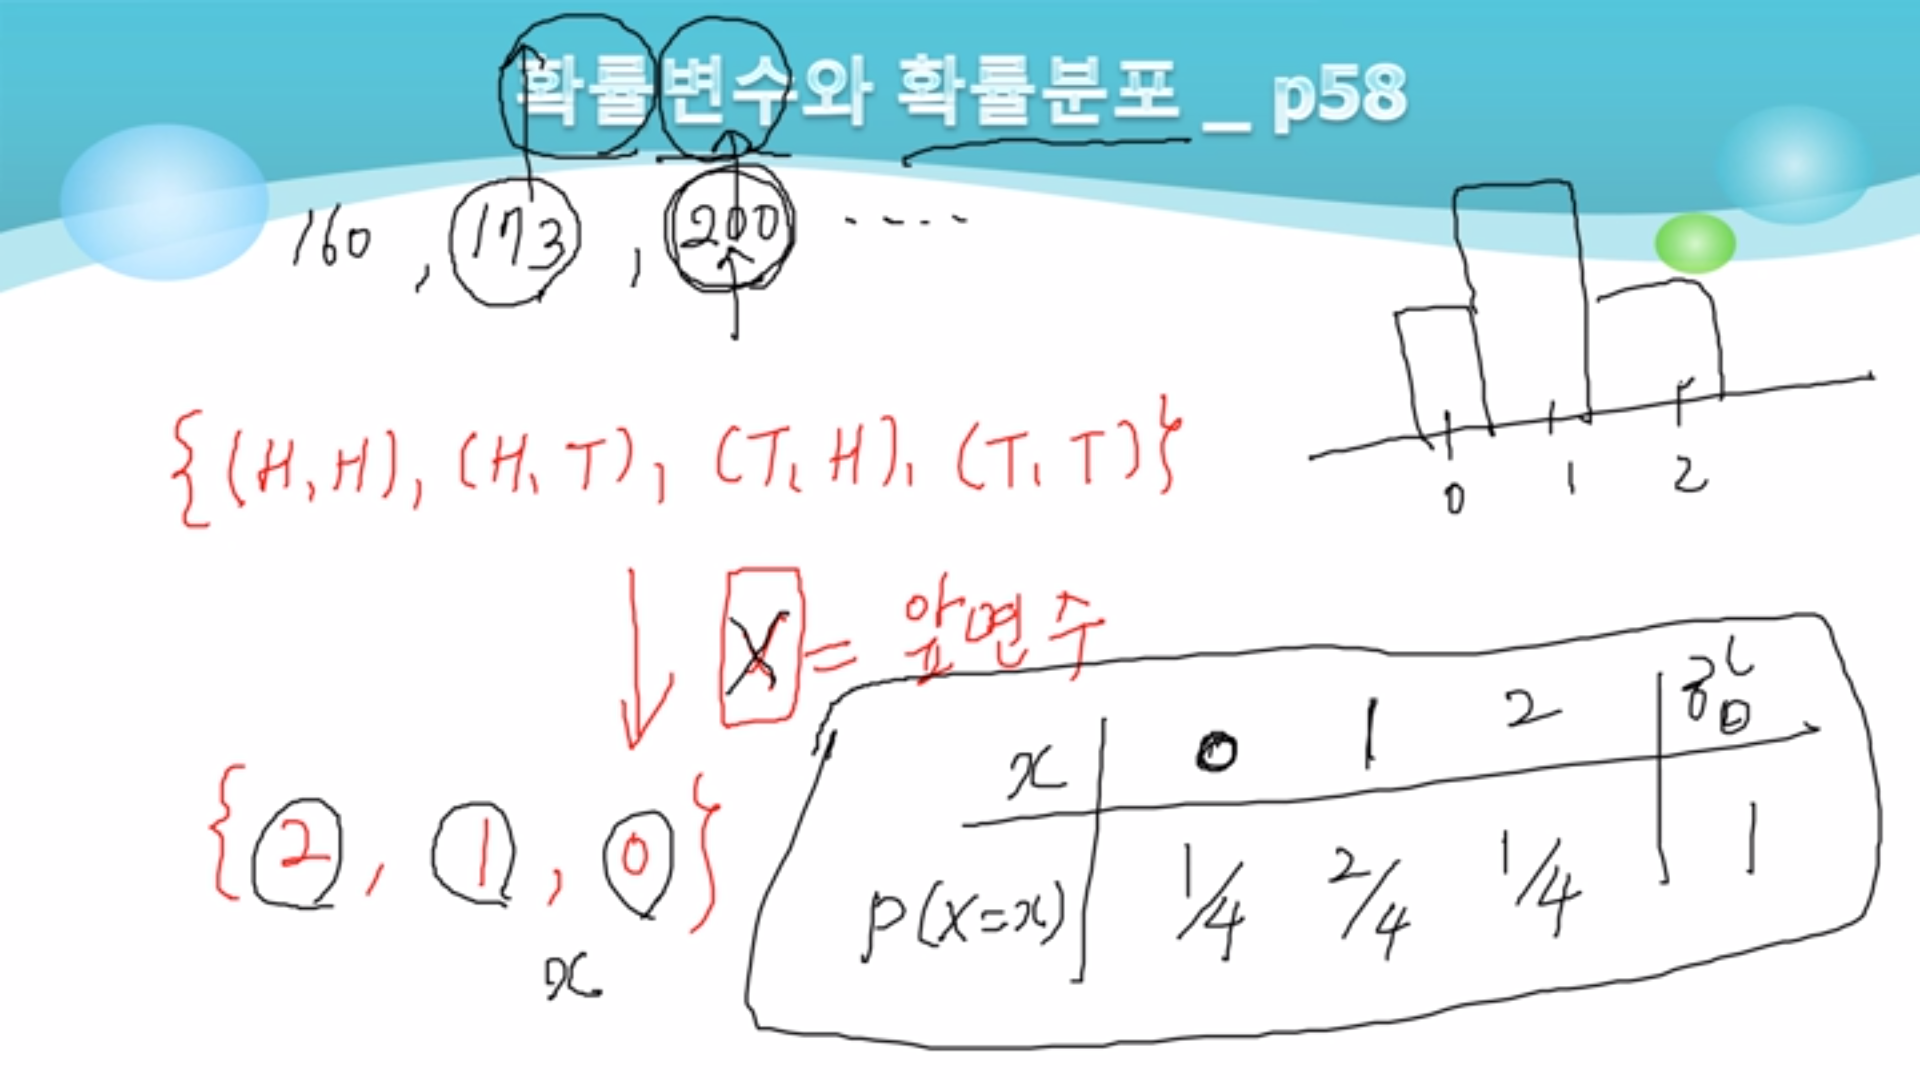 확률변수와 확률분포 _ p58
160 , 173 , 200 ....
0 1 2
{(H,H), (H,T), (T,H), (T,T)}
X = 앞면수
{2, 1, 0}
x
x 0 1 2 합
P(X=x) 1/4 2/4 1/4 1